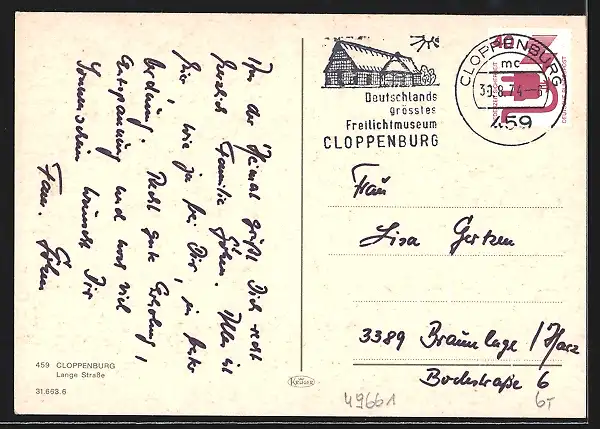 In der Heimat grüßt Dich recht
herzlich Familie Göken. Alles ist
hier wie ja bei Dir, in bester
Ordnung. Recht gute Erholung,
Entspannung und noch viel
Sonnenschein wünscht Dir
Fam. Göken
459 CLOPPENBURG
Lange Straße
31.663.6
Krüger
Deutschlands
grösstes
Freilichtmuseum
CLOPPENBURG
CLOPPENBURG
mc
30.8.74
459
40
Frau
Lisa Gerken
3389 Braunlage / Harz
Bodestraße 6
49661